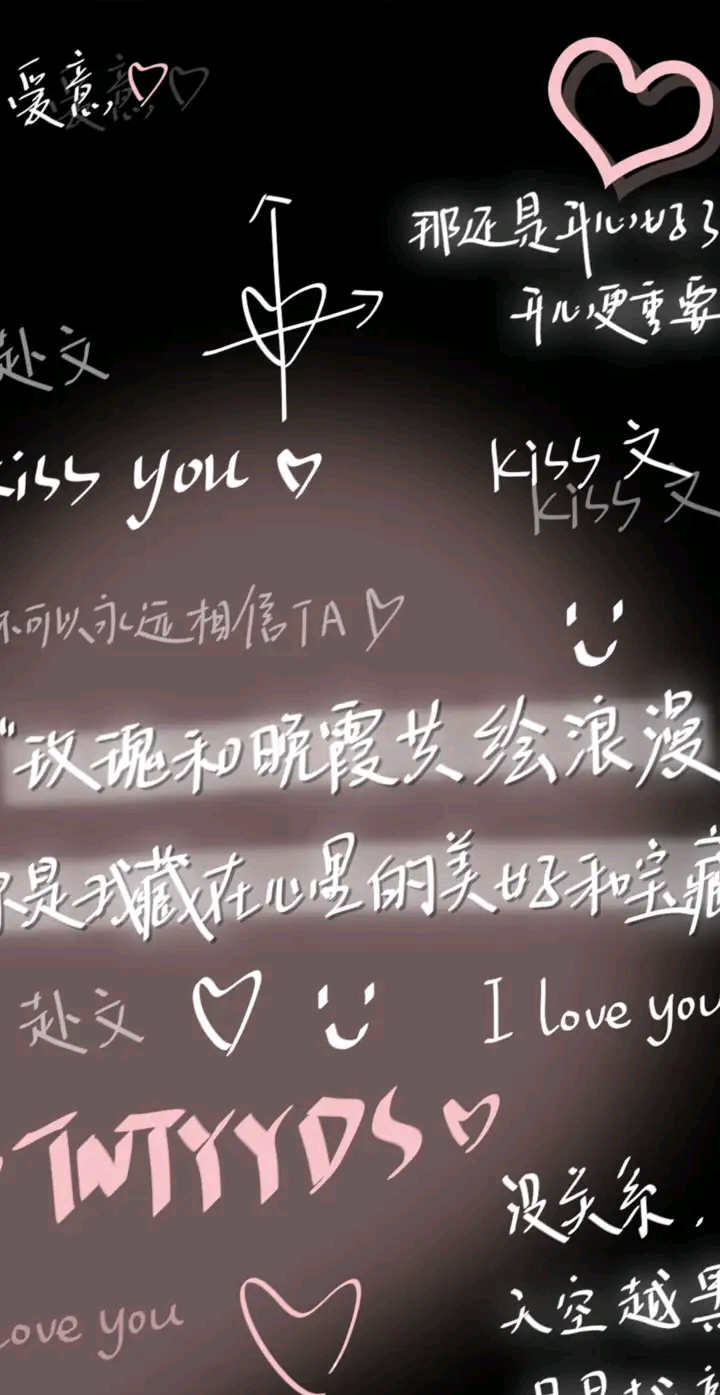 爱意,
那还是开心好了
开心更重要
赴文
kiss you
kiss 文
kiss 文
你可以永远相信TA
“玫瑰和晚霞共绘浪漫
你是我藏在心里的美好和宝藏
赴文
I love you
TNTYYDS
没关系,
love you
天空越黑